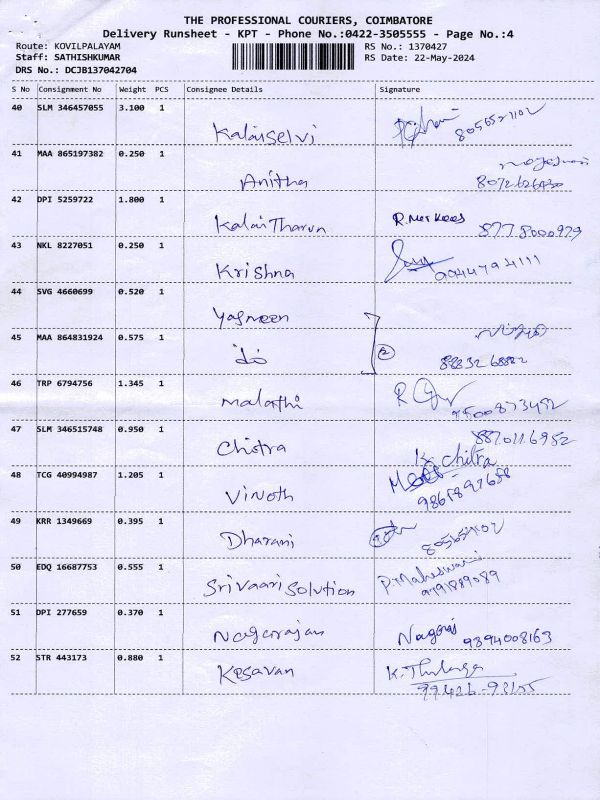 THE PROFESSIONAL COURIERS, COIMBATORE
Delivery Runsheet - KPT - Phone No.:0422-3505555 - Page No.:4
Route: KOVILPALAYAM RS No.: 1370427
Staff: SATHISHKUMAR RS Date: 22-May-2024
DRS No.: DCJB137042704
S No Consignment No Weight PCS Consignee Details Signature
40 SLM 346457055 3.100 1
Kalaiselvi
41 MAA 865197382 0.250 1
Anitha
42 DPI 5259722 1.800 1
KalaiTharun 8778000979
43 NKL 8227051 0.250 1
Krishna
44 SVG 4660699 0.520 1
Yasmeen
45 MAA 864831924 0.575 1
do 2
46 TRP 6794756 1.345 1
Malathi
47 SLM 346515748 0.950 1 8870116952
Chitra K. Chitra
48 TCG 40994987 1.205 1
Vinoth
49 KRR 1349669 0.395 1
Dharani
50 EDQ 16687753 0.555 1
Srivaari Solution P. Maheswari 9791889089
51 DPI 277659 0.370 1
Nagarajan Nagaraj 9394008163
52 STR 443173 0.880 1
Kesavan